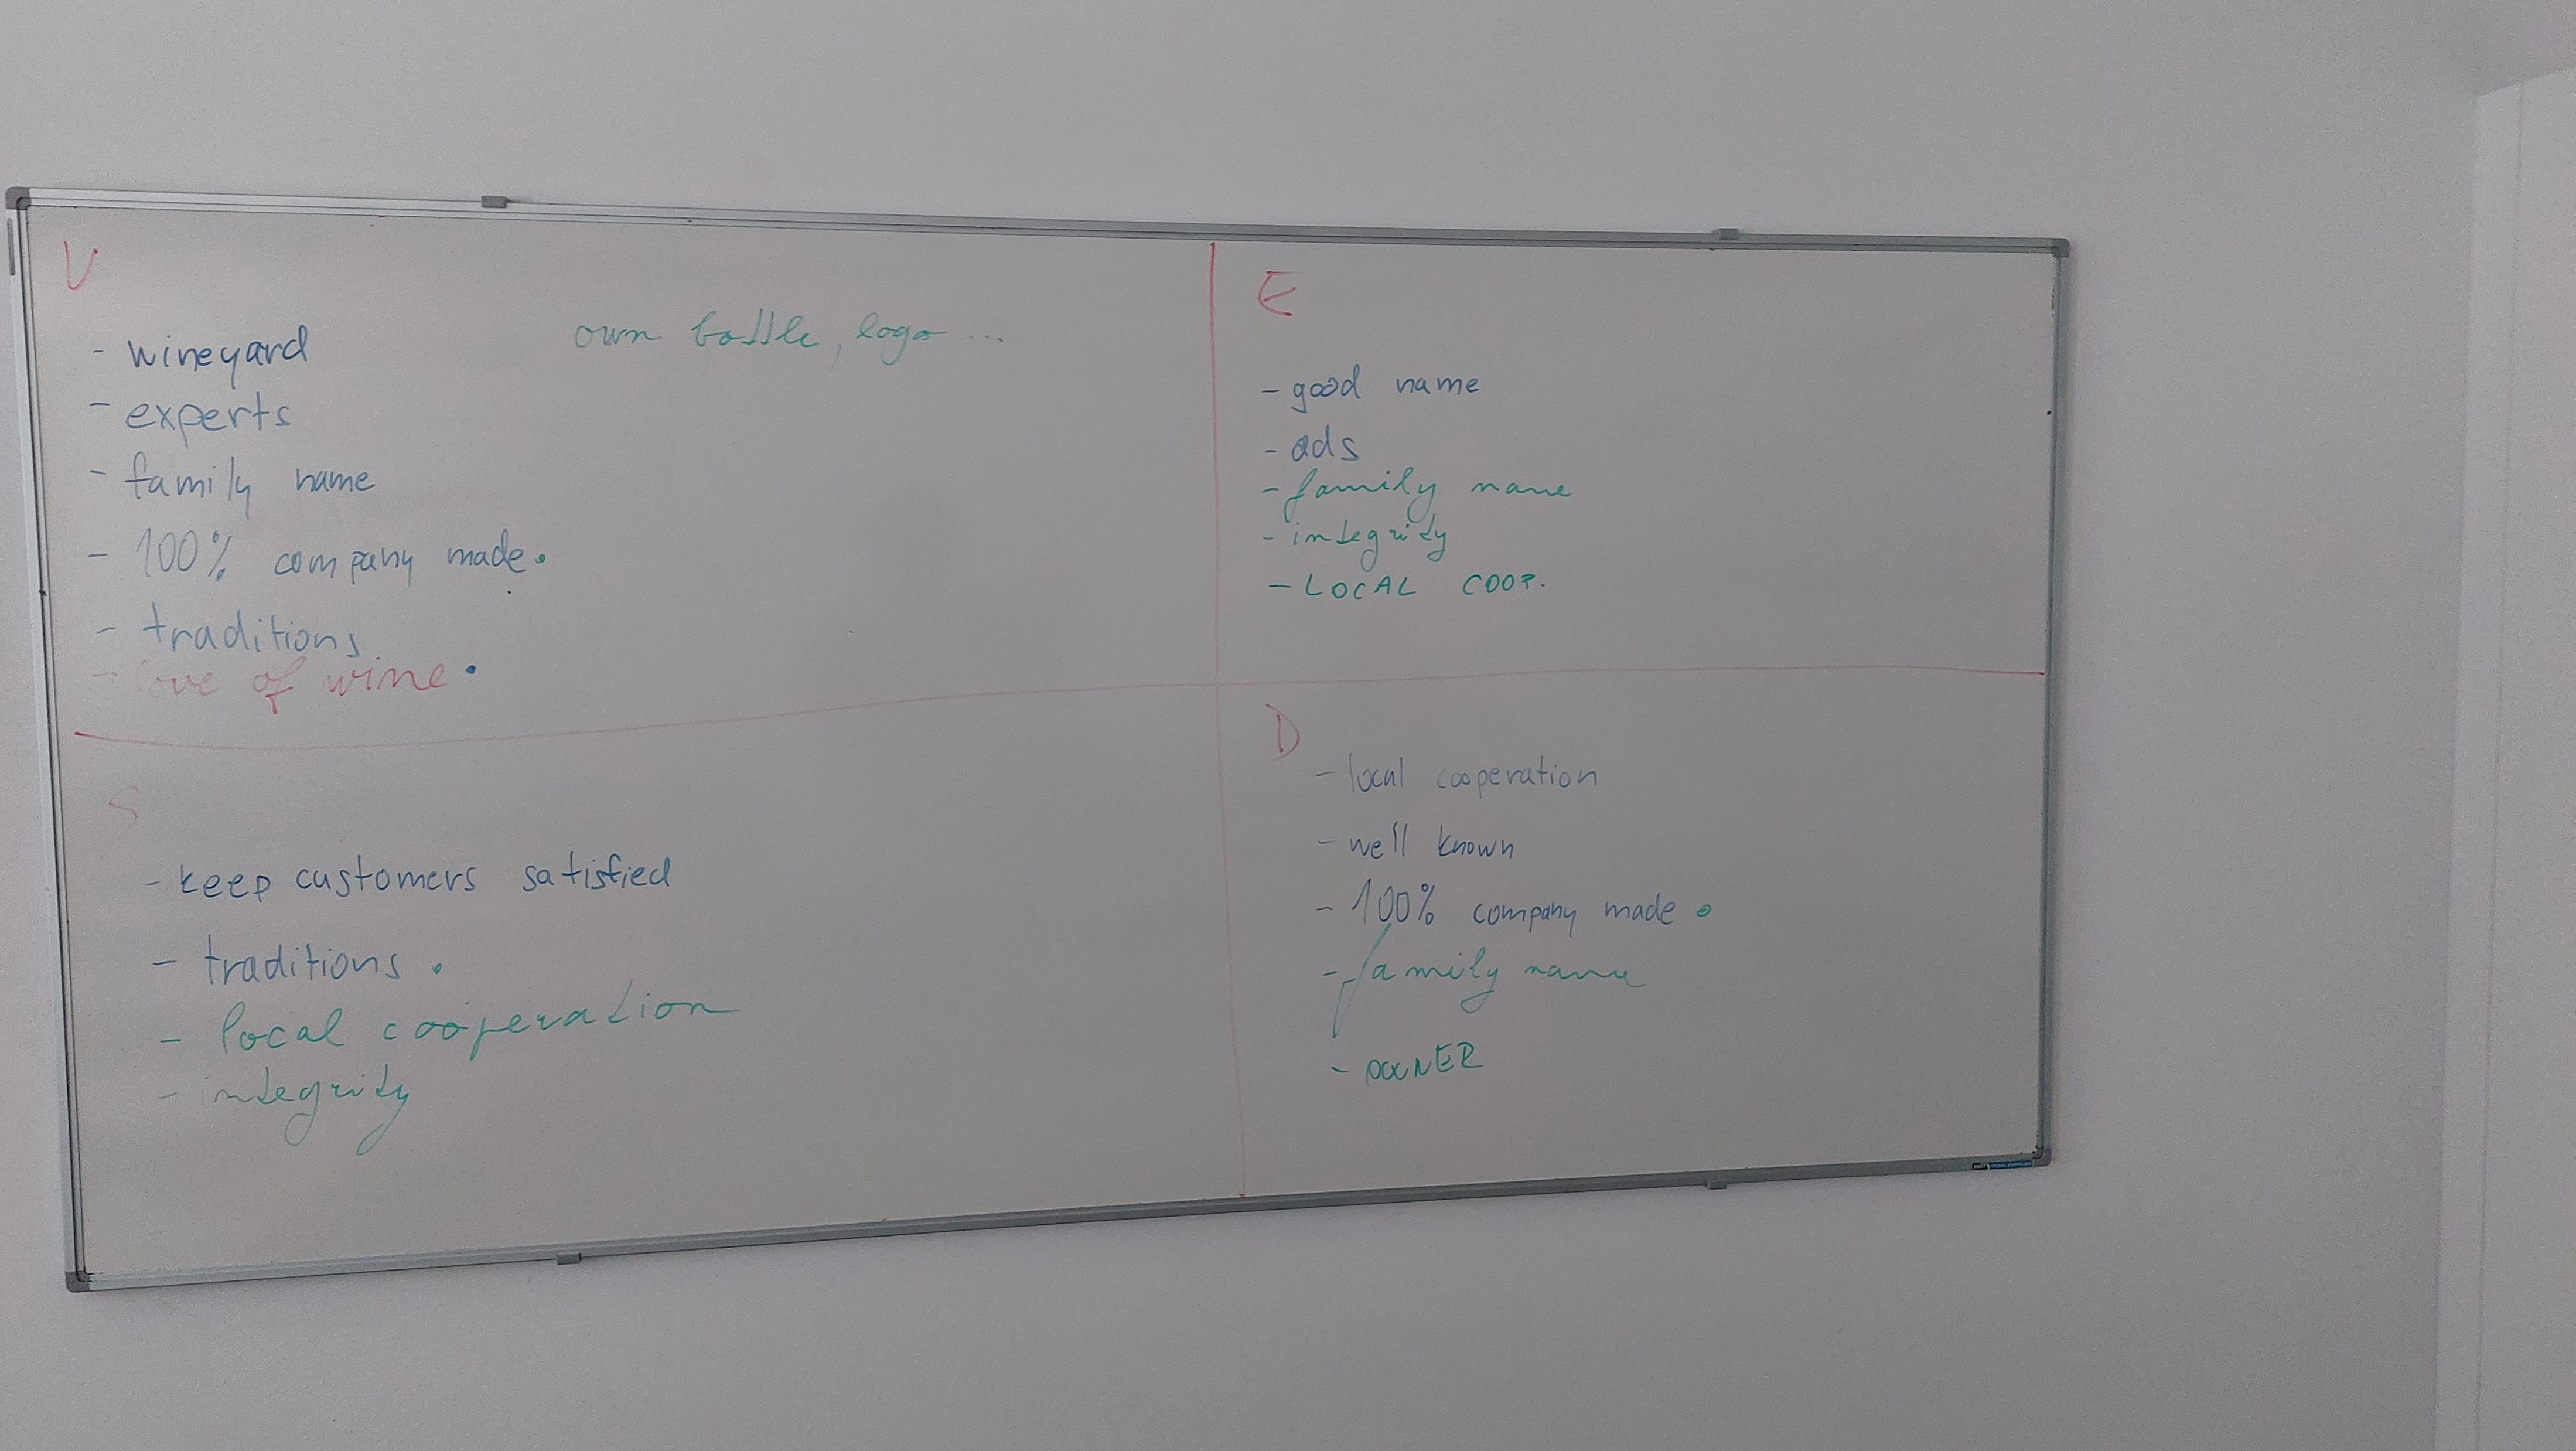 V
- wineyard
own bottle, logo ...
- experts
- family name
- 100% company made.
- traditions
- love of wine.
E
- good name
- ads
- family name
- integrity
- LOCAL COOP.
S
- keep customers satisfied
- traditions.
- local cooperation
- integrity
D
- local cooperation
- well known
- 100% company made.
- family name
- OWNER